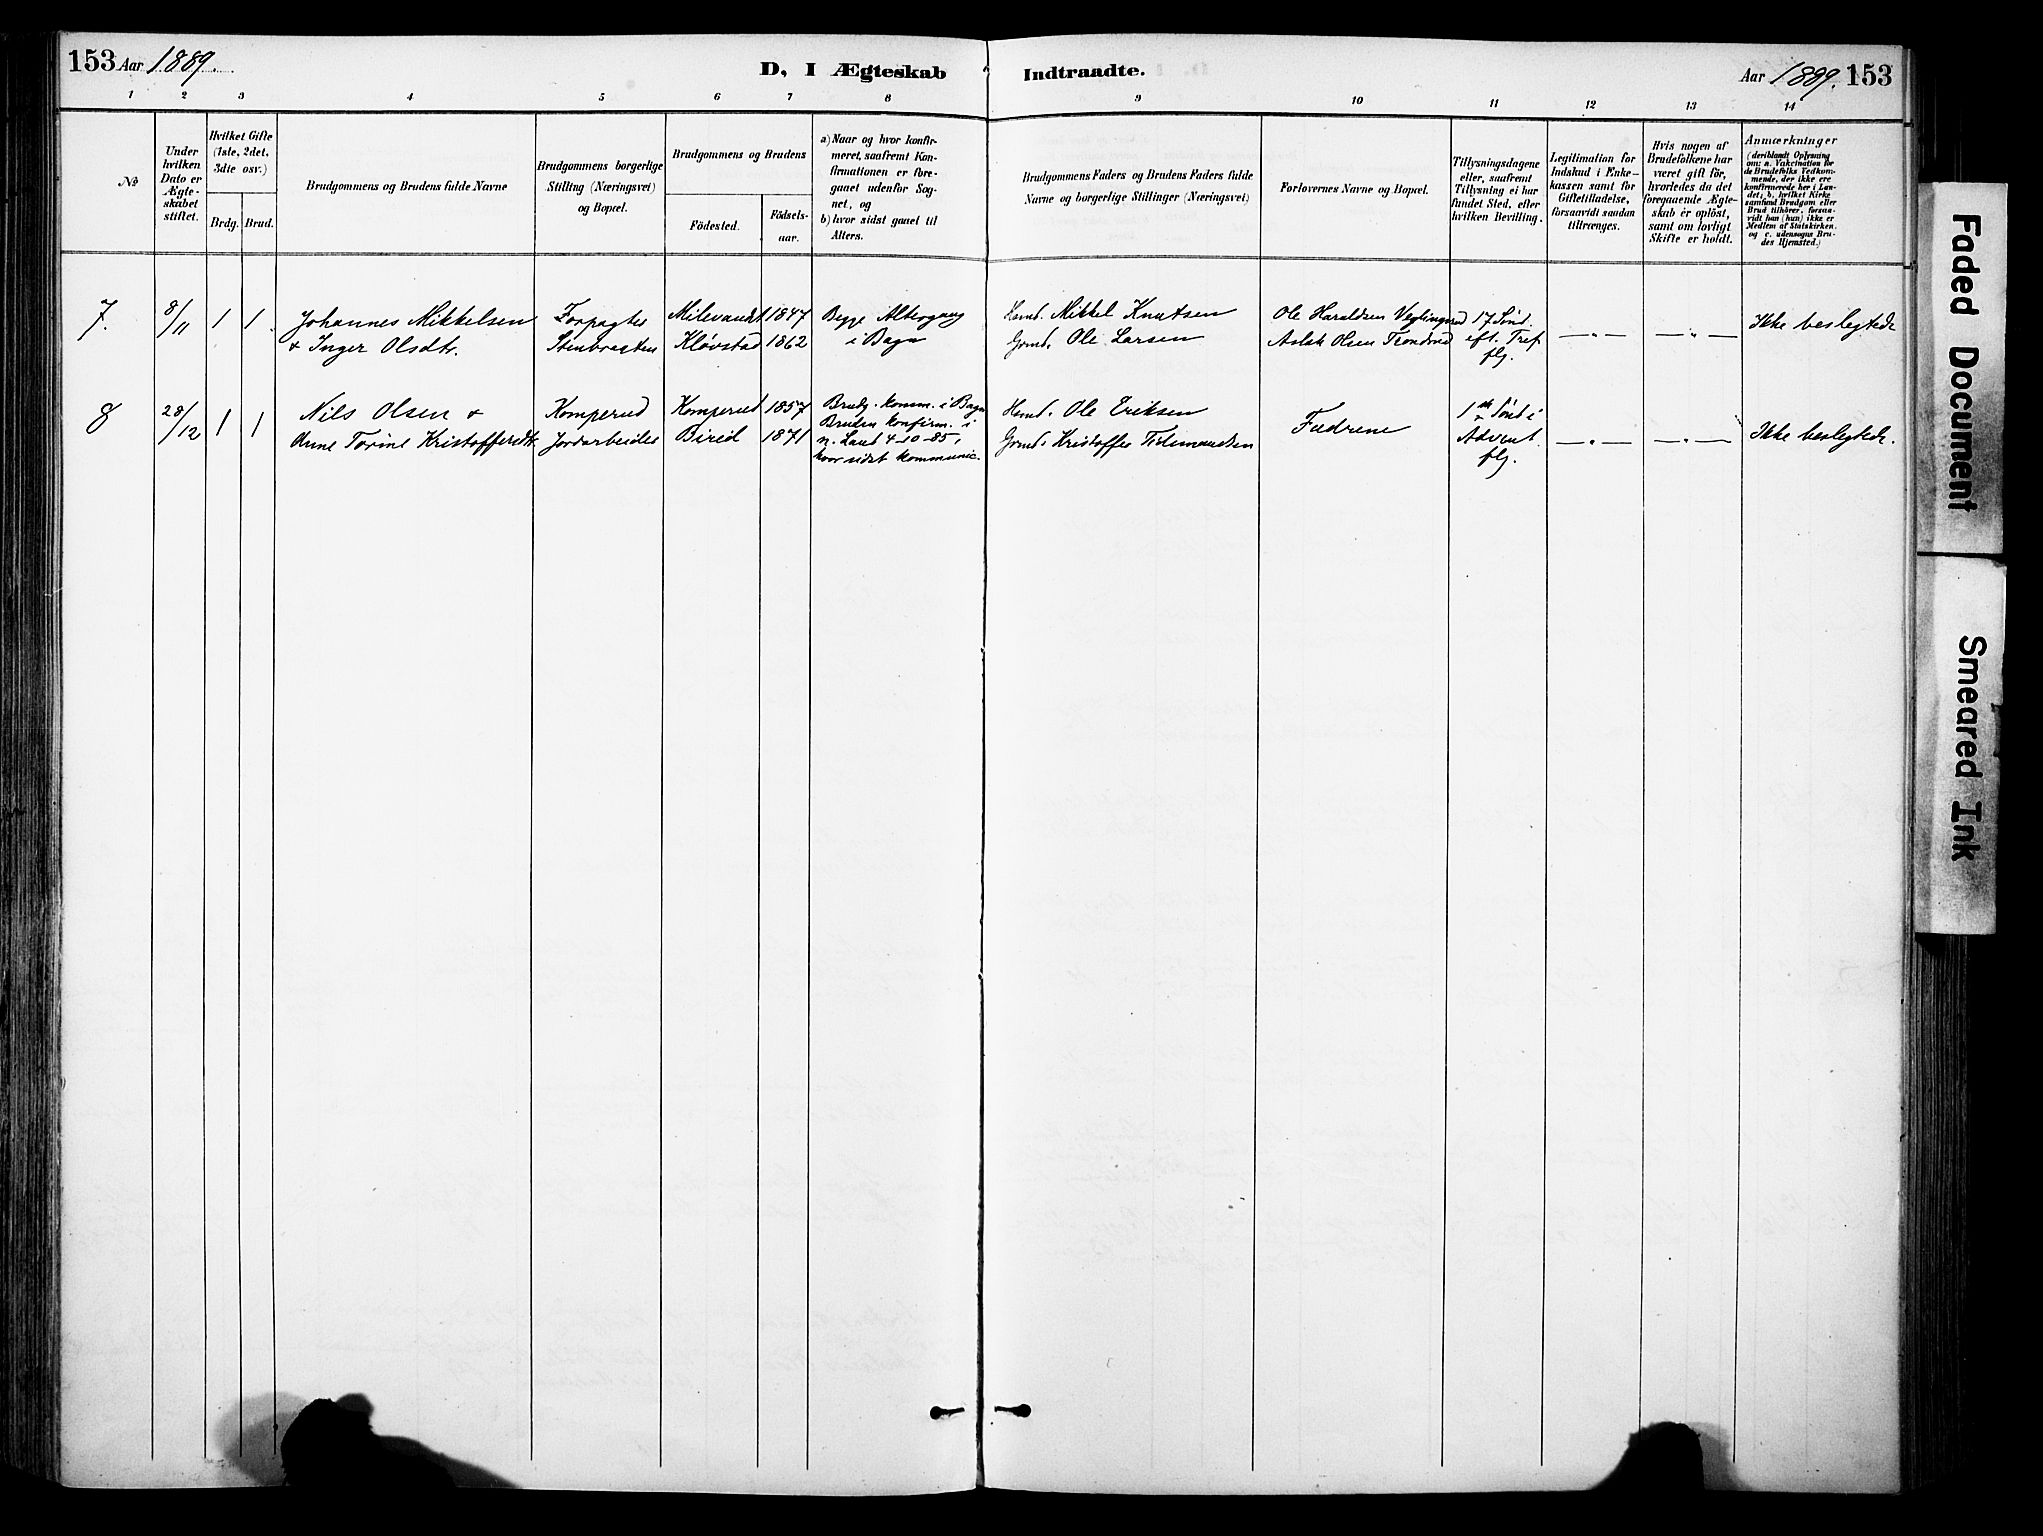 153 Aar 1889.
D, I Ægteskab Indtraadte.
Aar 1889. 153
1 2 3 4 5 6 7 8 9 10 11 12 13 14
No
Under hvilken Dato er Ægte-skabet stiftet.
Hvilket Gifte (1ste, 2det, 3die osv.)
Brdg. Brud.
Brudgommens og Brudens fulde Navne
Brudgommens borgerlige Stilling (Næringsvei) og Bopæl.
Brudgommens og Brudens
Födested.
Födsels-aar.
a) Naar og hvor konfir-
meret, saafremt Kon-
firmationen er fore-
gaaet udenfor Sog-
net, og
b) hvor sidst gaaet til
Alters.
Brudgommens Faders og Brudens Faders fulde
Navne og borgerlige Stillinger (Næringsvei)
Forlovernes Navne og Bopæl.
Tillysningsdagene
eller, saafremt
Tillysning ei har
fundet Sted, efter
hvilken Bevilling.
Legitimation for
Indskud i Enke-
kassen samt for
Giftetilladelse,
forsaavidt saadan
tiltrænges.
Hvis nogen af
Brudefolkene har
været gift för,
hvorledes da det
foregaaende Ægte-
skab er oplöst,
samt om lovligt
Skifte er holdt.
Anmærkninger
(deriblandt Oplysning
om: a. Vakcination for
de Brudefolks Vedkom-
mende, der ikke ere
konfirmerede her i Lan-
det; b. hvilket Kirke-
samfund Brudgom eller
Brud tilhörer, forsaa-
vidt han (hun) ikke er
Medlem af Statskirken.
og c. udensogns Bru-
des Hjemsted.)
7. 8/11 1 1. Johannes Mikkelsen
& Inger Olsdtr.
Forpagter
Stenbrøten
1847
Kløvstad 1862
Begge Altergang
i Bagn
Hmd. Mikkel Knutsen
Grmd. Ole Larsen
Ole Haraldsen
Aslak Olsen Trondrud
17 Sønd.
eft. Tref.
flg.
—"— —"— Ikke beslegtede
8 28/12 1 1 Nils Olsen &
Anne Torine Kristoffersdtr.
Komperud
Jordarbeider
Komperud 1857
Bireid 1871
Brudg. komm. i Bagn
Bruden konfirm. i
n. Land 4-10-85,
hvor sidst kommunic.
Hmd. Ole Eriksen
Grmd. Kristoffer Tidemandsen
Fædrene
1ste Sønd i
Advent.
flg.
—"— —"— Ikke beslegtede.
Faded Document
Smeared Ink